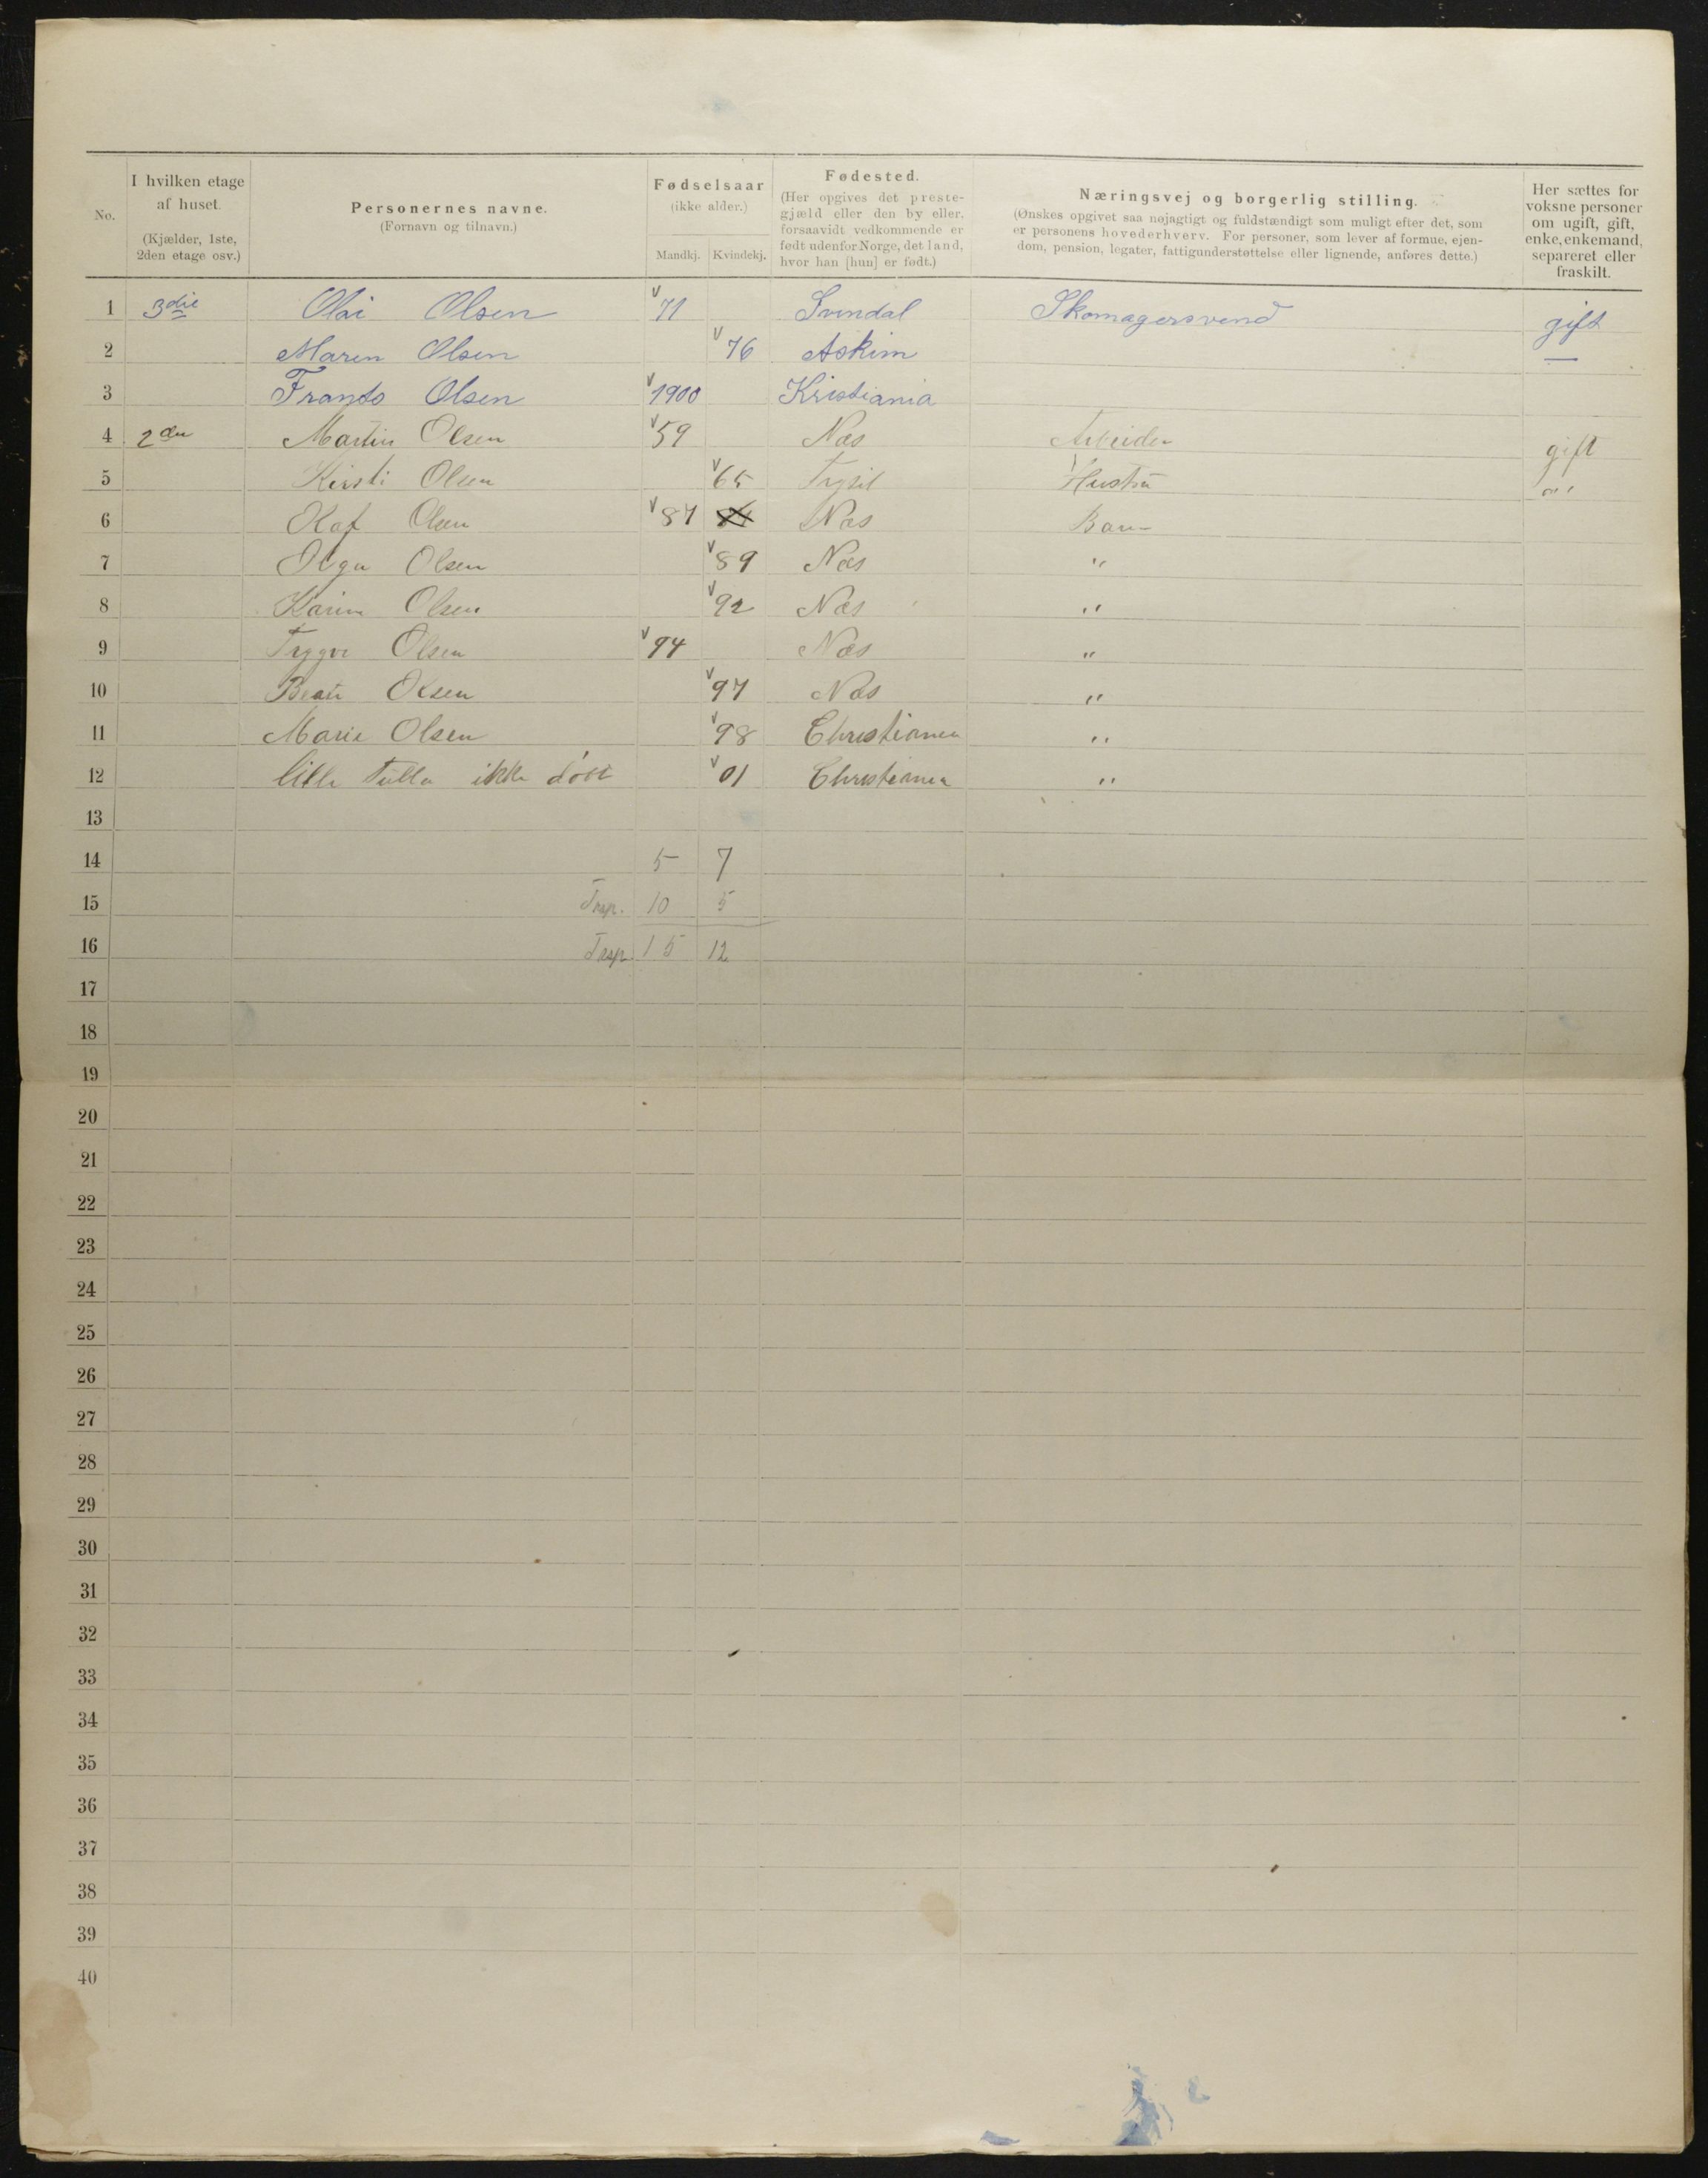 No.
I hvilken etage
af huset.
(Kjælder, 1ste,
2den etage osv.)
Personernes navne.
(Fornavn og tilnavn.)
Fødselsaar
(ikke alder.)
Mandkj. Kvindekj.
Fødested.
(Her opgives det preste-
gjæld eller den by eller,
forsaavidt vedkommende er
født udenfor Norge, det land,
hvor han [hun] er født.)
Næringsvej og borgerlig stilling.
(Ønskes opgivet saa nøjagtigt og fuldstændigt som muligt efter det, som
er personens hovederhverv. For personer, som lever af formue, ejen-
dom, pension, legater, fattigunderstøttelse eller lignende, anføres dette.)
Her sættes for
voksne personer
om ugift, gift,
enke, enkemand,
separeret eller
fraskilt.
1 3die Olai Olsen 71 Svindal Skomagersvend gift
2 Maren Olsen 76 Askim —
3 Frants Olsen 1900 Kristiania
4 2den Martin Olsen 59 Næs Arbeider gift
5 Kirsti Olsen 65 Trysil Hustru "
6 Olaf Olsen 87 Næs Barn
7 Olga Olsen 89 Næs "
8 Karen Olsen 92 Næs "
9 Trygve Olsen 94 Næs "
10 Olsen 97 Næs "
11 Marie Olsen 98 Christiania "
12 lille Tulla ikke døbt 01 Christiania "
13
14 5 7
15 Trsp. 10 5
16 Trsp 15 12
17
18
19
20
21
22
23
24
25
26
27
28
29
30
31
32
33
34
35
36
37
38
39
40